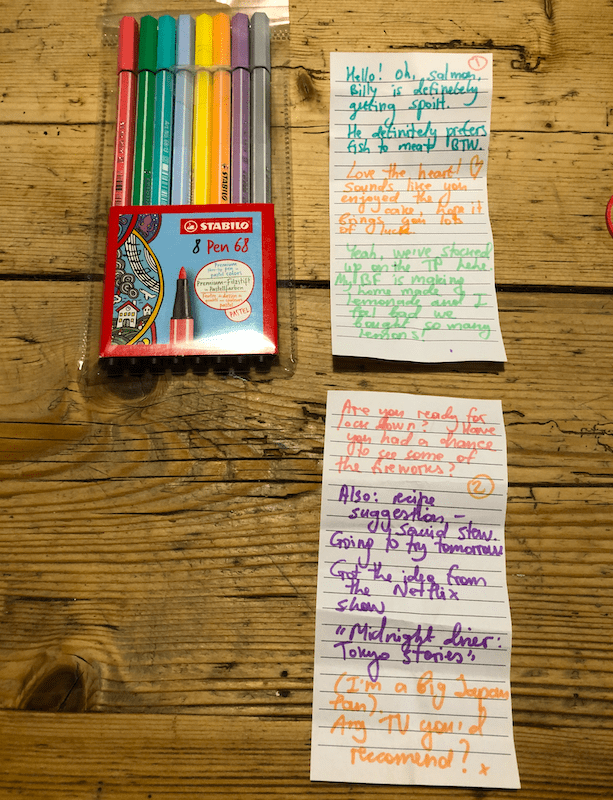 STABILO
STABILO
8 Pen 68
Premium
pastel colors
Premium-Filzstift
in Pastellfarben
PASTEL
1
Hello! Oh, salmon,
Billy is definetely
getting spoilt.
He definitely prefers
fish to meat BTW.
Love the heart!
Sounds like you
enjoyed the
cake, hope it
brings you lots
of luck
Yeah, we've stocked
up on the TP here
My BF is making
home made
lemonade and I
feel bad we
bought so many
lemons!
Are you ready for
lock down? Have
you had a chance
to see some of
the fireworks?
2
Also: recipe
suggestion –
squid stew.
Going to try tomorrow
Got the idea from
the Netflix
show
"Midnight diner:
Tokyo Stories"
(I'm a Big Japan
fan).
Any TV you'd
reccomend? x